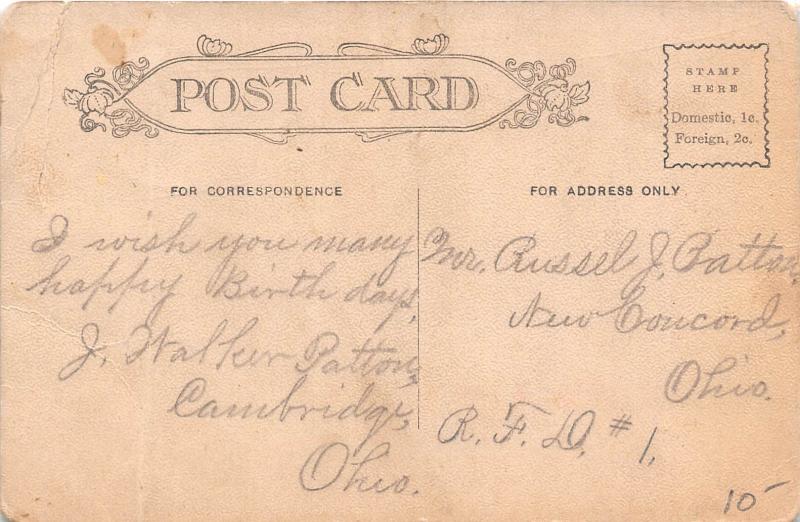 POST CARD
STAMP
HERE
Domestic, 1c.
Foreign, 2c.
FOR CORRESPONDENCE
I wish you many
happy Birth days,
J. Walker Patton,
Cambridge,
Ohio.
FOR ADDRESS ONLY
Mr. Russel J. Patton,
New Concord,
Ohio.
R. F. D. # 1.
10-